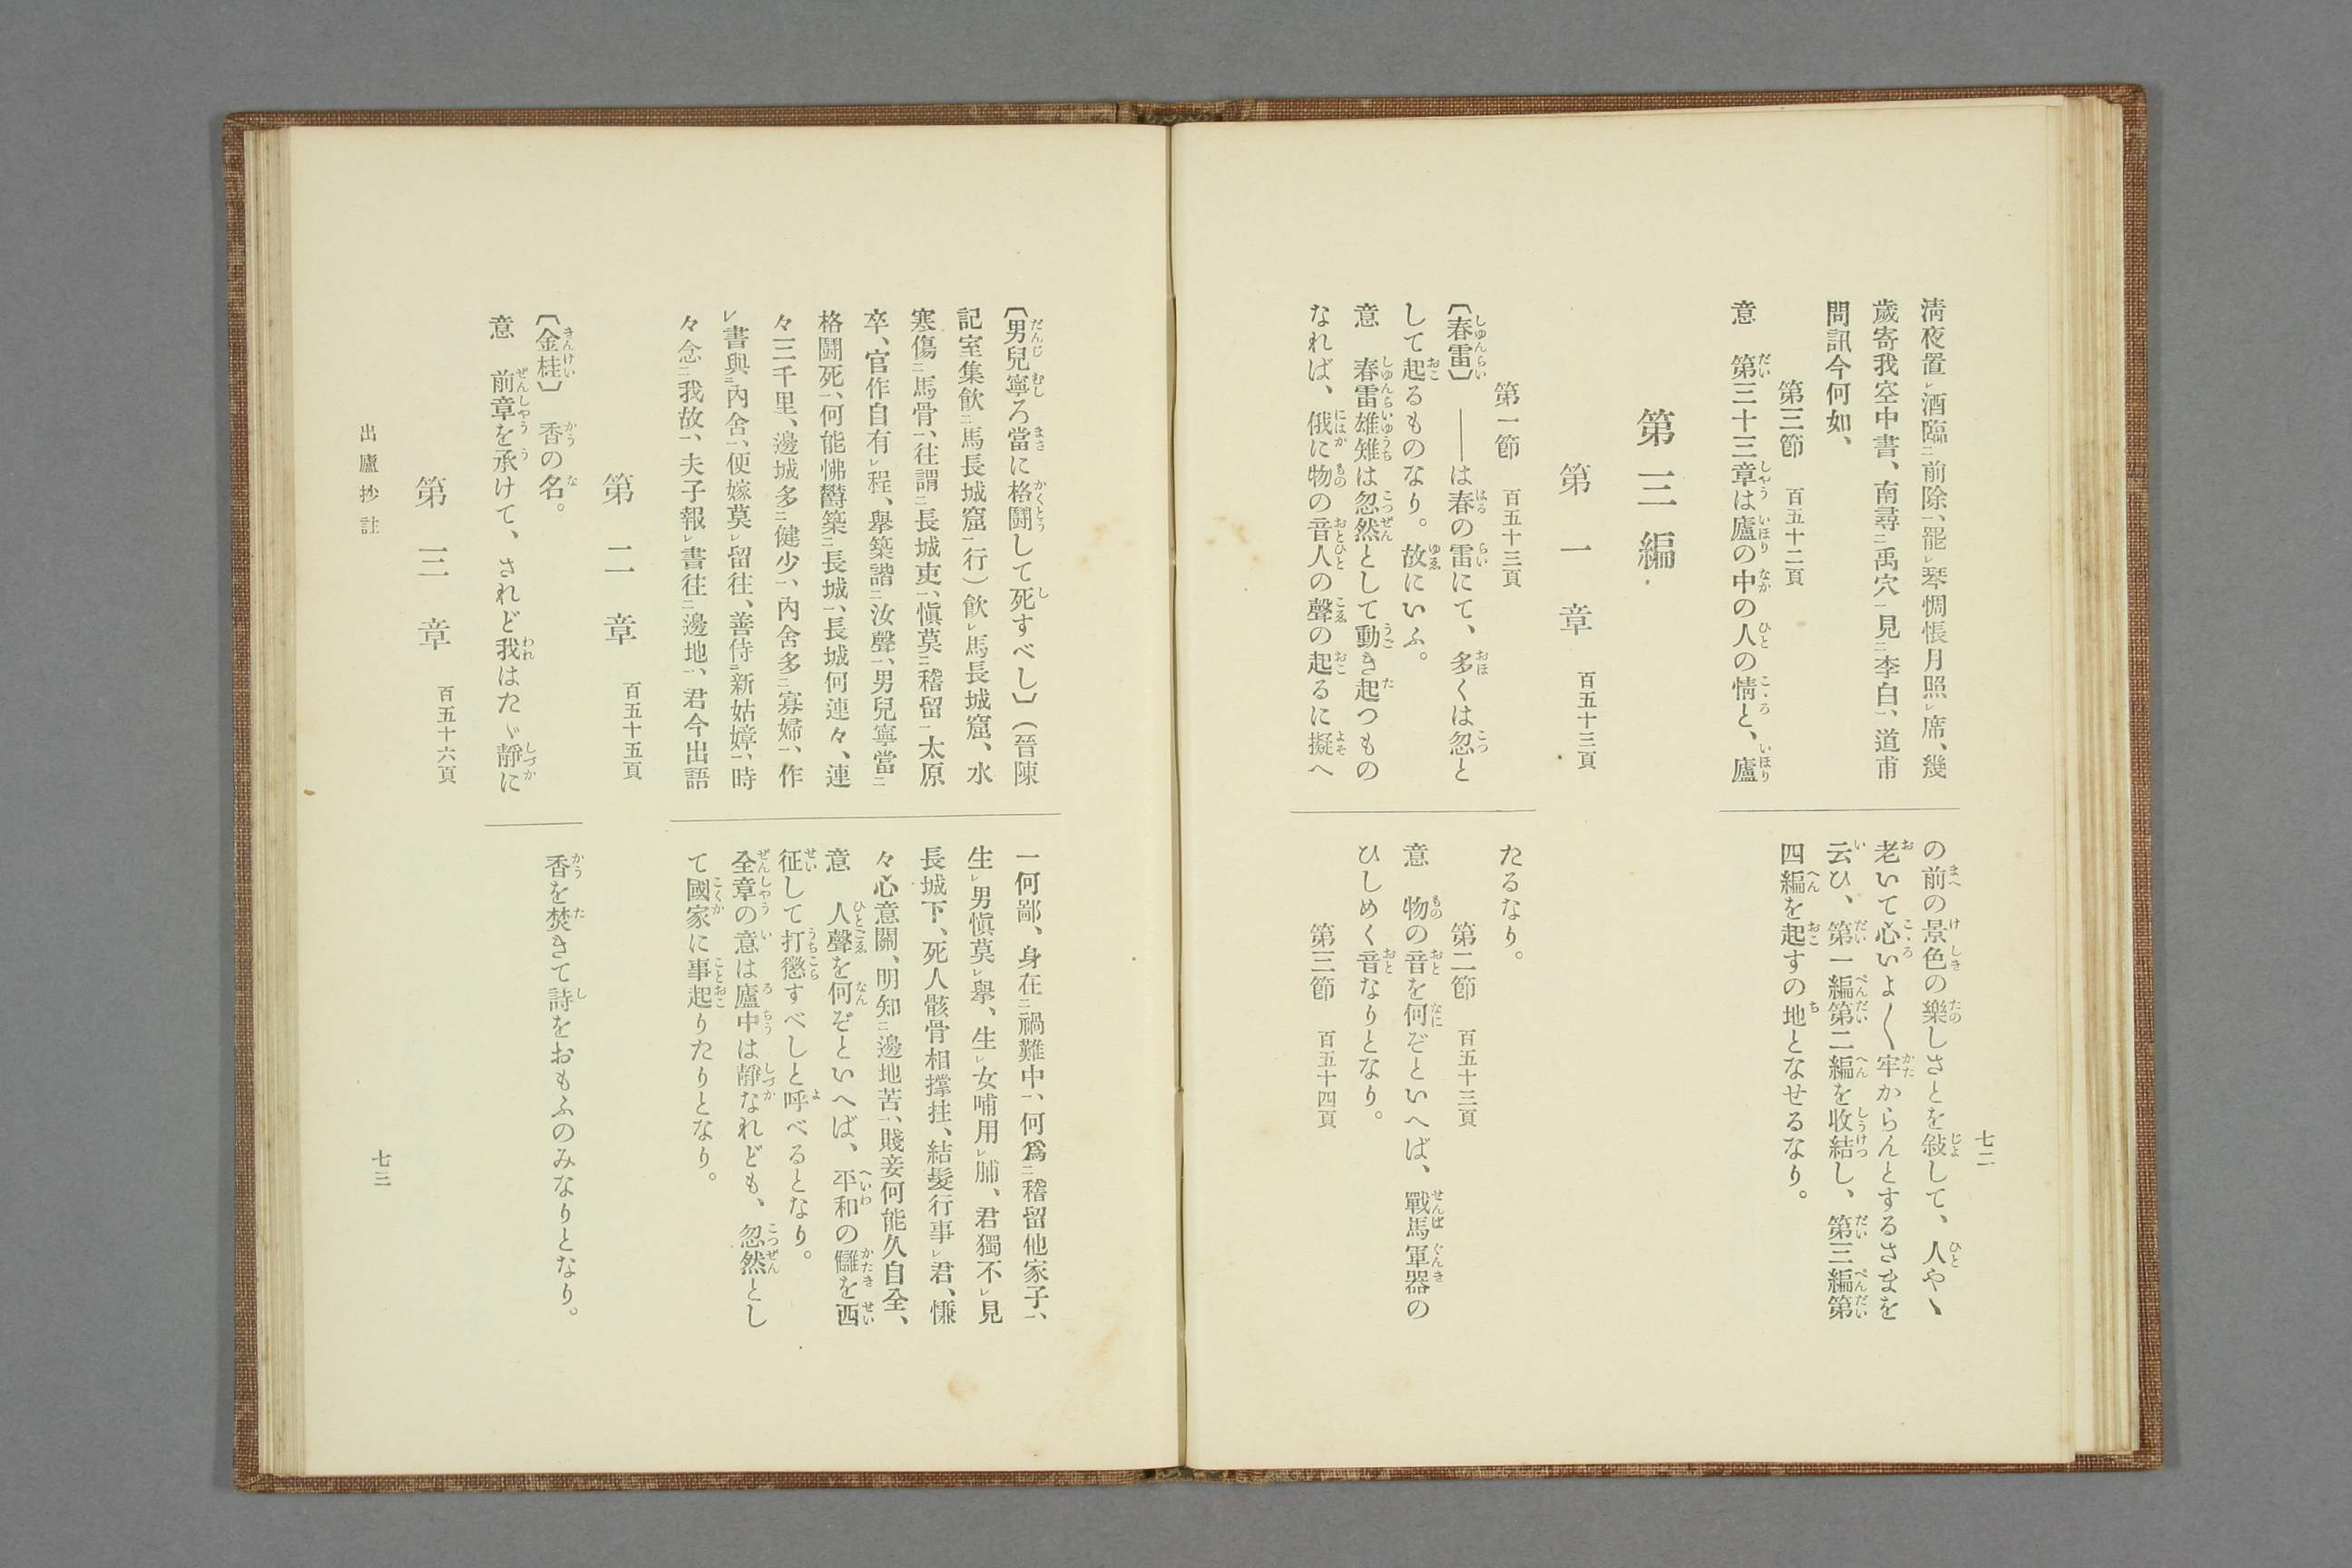 清夜置レ酒臨二前除一、罷レ琴惆悵月照レ席、幾
歲寄我空中書、南尋二禹穴一見二李白一、道甫
問訊今何如、
第三節 百五十二頁
意 第三十三章は廬の中の人の情と、廬
の前の景色の樂しさとを敍して、人やゝ
老いて心いよ〱牢からんとするさまを
云ひ、第一編第二編を收結し、第三編第
四編を起すの地となせるなり。
第三編
第一章 百五十三頁
第一節 百五十三頁
〔春雷〕 ――は春の雷にて、多くは忽と
して起るものなり。故にいふ。
意 春雷雄雉は忽然として動き起つもの
なれば、俄に物の音人の聲の起るに擬へ
たるなり。
第二節 百五十三頁
意 物の音を何ぞといへば、戰馬軍器の
ひしめく音なりとなり。
第三節 百五十四頁
七二
〔男兒寧ろ當に格鬪して死すべし〕(晉陳
記室集飮二馬長城窟一行)飮レ馬長城窟、水
寒傷二馬骨一、往謂二長城吏一、愼莫三稽留二太原
卒、官作自有レ程、擧築諧二汝聲一、男兒寧當二
格鬪死一、何能怫鬱築二長城一、長城何連々、連
々三千里、邊城多二健少一、內舍多二寡婦一、作
レ書與二內舍一、便嫁莫レ留往、善侍二新姑嫜一、時
々念二我故一、夫子報レ書往二邊地一、君今出語
一何鄙、身在二禍難中一、何爲二稽留他家子一、
生レ男愼莫レ擧、生レ女哺用レ脯、君獨不レ見
長城下、死人骸骨相撐拄、結髮行事レ君、慊
々心意關、明知二邊地苦一、賤妾何能久自全、
意 人聲を何ぞといへば、平和の讎を西
征して打懲すべしと呼べるとなり。
全章の意は廬中は靜なれども、忽然とし
て國家に事起りたりとなり。
第二章 百五十五頁
〔金桂〕 香の名。
意 前章を承けて、されど我はたゞ靜に
香を焚きて詩をおもふのみなりとなり。
第三章 百五十六頁
出廬抄註
七三